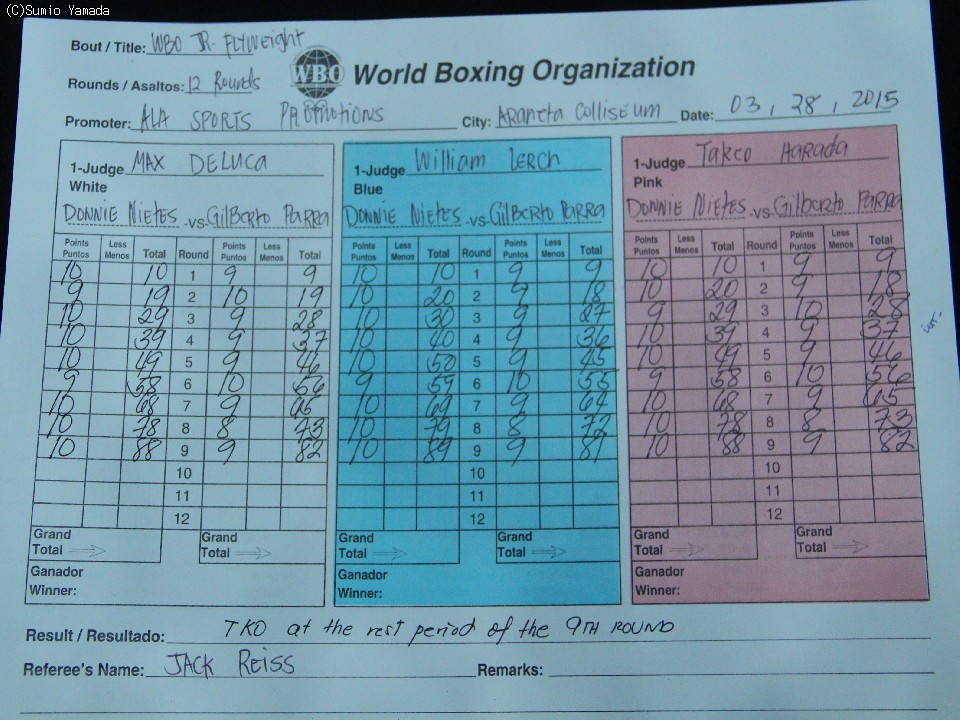 (C)Sumio Yamada
Bout / Title: WBO JR. FLYWEIGHT
WBO
World Boxing Organization
Rounds / Asaltos: 12 Rounds
Promoter: ALA SPORTS PROMOTIONS City: ARANETA COLLISEUM Date: 03, 28, 2015
1-Judge MAX DELUCA
White
DONNIE NIETES -vs- GILBERTO PARRA
Points Puntos Less Menos Total Round Points Puntos Less Menos Total
10 10 1 9 9
9 19 2 10 19
10 29 3 9 28
10 39 4 9 37
10 49 5 9 46
9 58 6 10 56
10 68 7 9 65
10 78 8 8 73
10 88 9 9 82
10
11
12
Grand Total Grand Total
Ganador
Winner:
1-Judge William LERCH
Blue
DONNIE NIETES -vs- GILBERTO PARRA
Points Puntos Less Menos Total Round Points Puntos Less Menos Total
10 10 1 9 9
10 20 2 9 18
10 30 3 9 27
10 40 4 9 36
10 50 5 9 45
9 59 6 10 55
10 69 7 9 64
10 79 8 8 72
10 89 9 9 81
10
11
12
Grand Total Grand Total
Ganador
Winner:
1-Judge TAKEO HARADA
Pink
DONNIE NIETES -vs- Gilberto PARRA
Points Puntos Less Menos Total Round Points Puntos Less Menos Total
10 10 1 9 9
10 20 2 9 18
9 29 3 10 28
10 39 4 9 37
10 49 5 9 46
9 58 6 10 56
10 68 7 9 65
10 78 8 8 73
10 88 9 9 82
10
11
12
Grand Total Grand Total
Ganador
Winner:
Result / Resultado: TKO at the rest period of the 9TH ROUND
Referee's Name: JACK REISS Remarks: